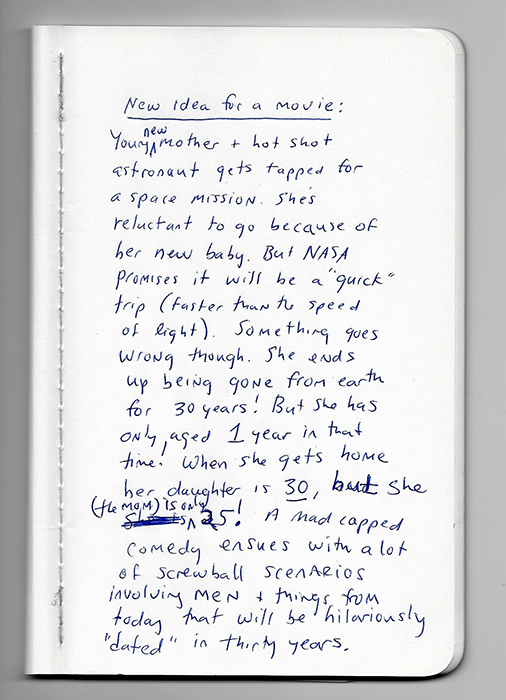 New idea for a movie:
Young new mother + hot shot
astronaut gets tapped for
a space mission. She's
reluctant to go because of
her new baby. But NASA
promises it will be a "quick"
trip (faster than the speed
of light). Something goes
wrong though. She ends
up being gone from earth
for 30 years! But she has
only aged 1 year in that
time. When she gets home
her daughter is 30, but she
(the mom) is only 25!  A mad capped
comedy ensues with a lot
of screwball scenarios
involving men + things from
today that will be hilariously
"dated" in thirty years.